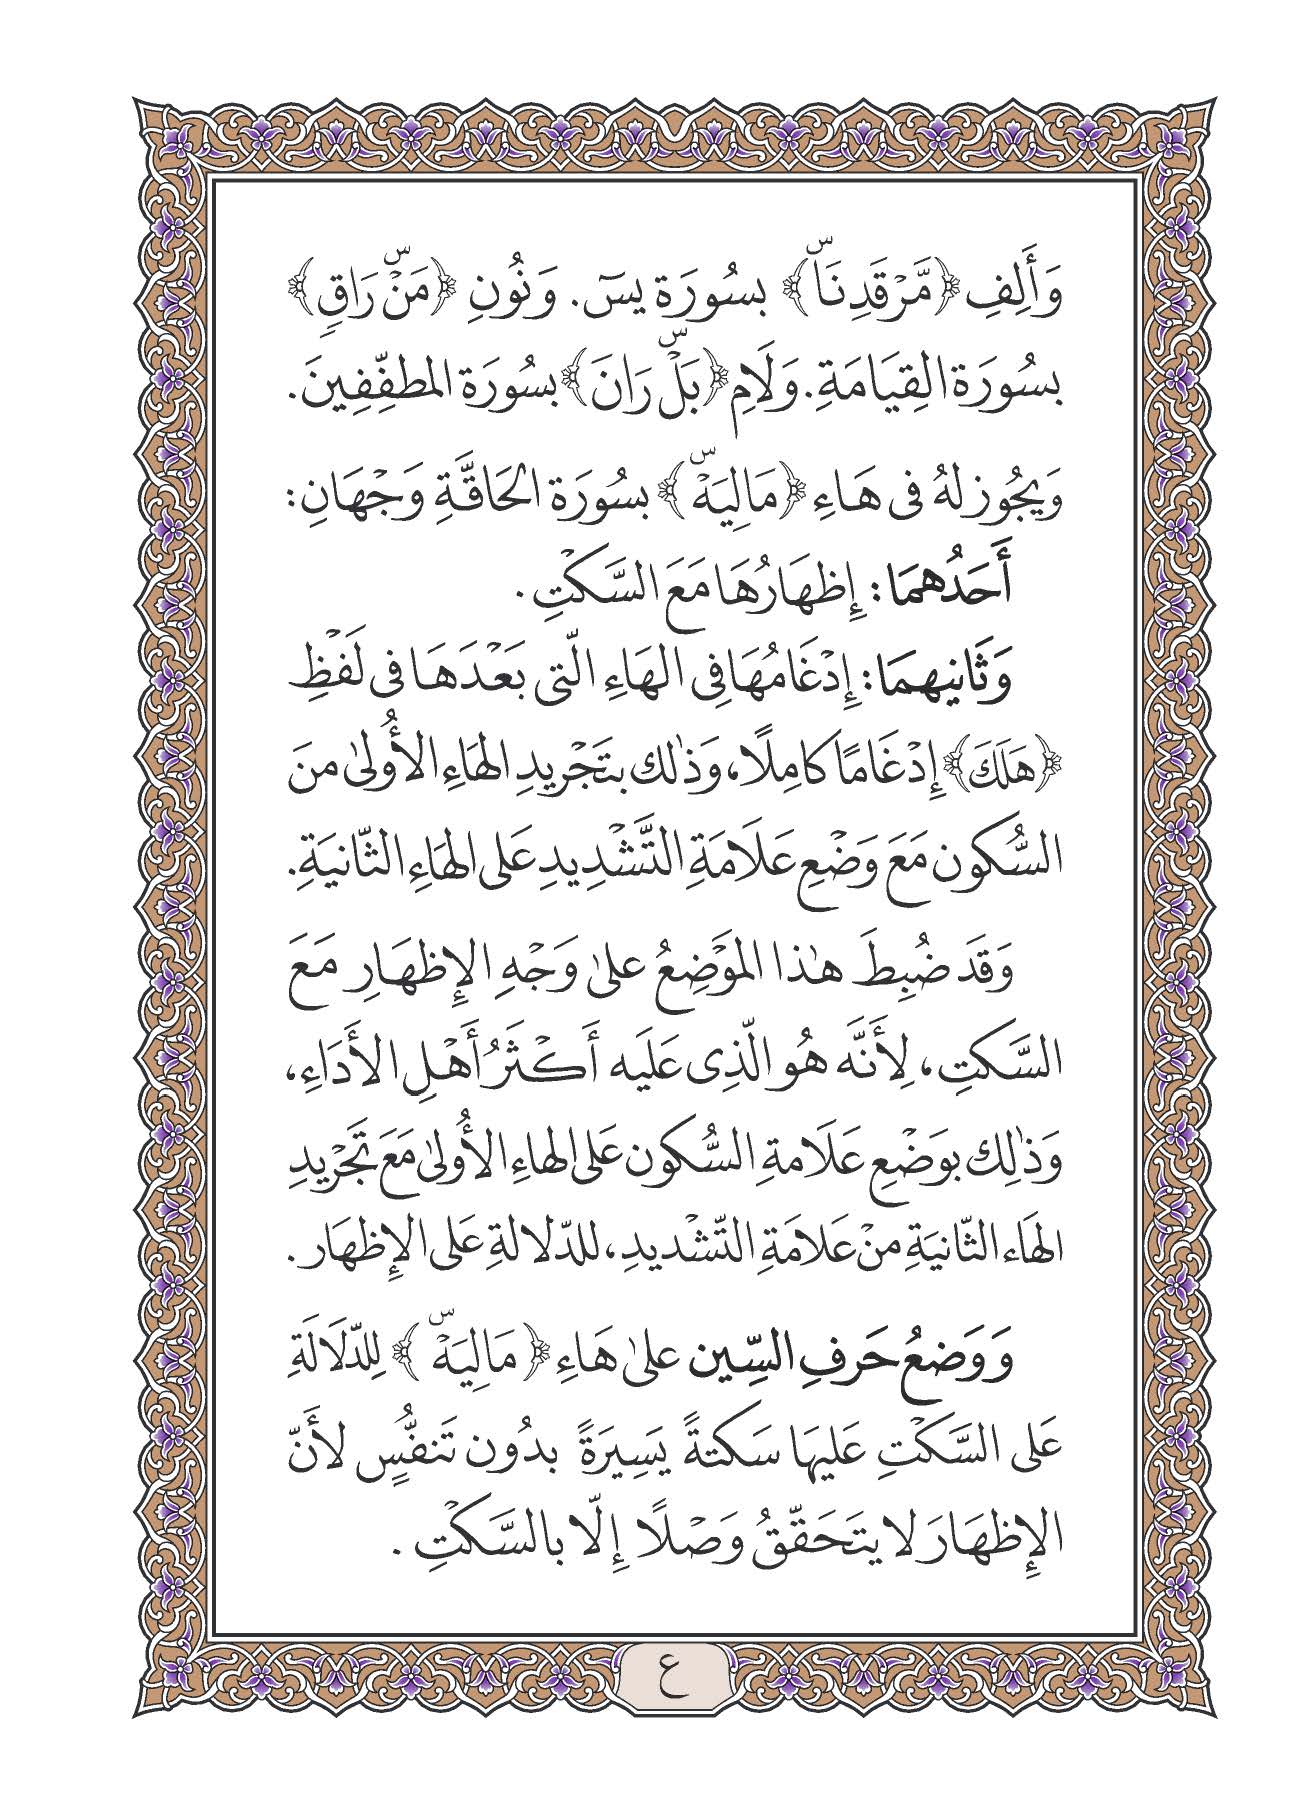 وَأَلِفِ ﴿مَّرْقَدِنَاۜ﴾ بسُورَة يسٓ. وَنُونِ ﴿مَنْۜ رَاقٍ﴾
بسُورَة القِيَامَةِ. وَلَامِ ﴿بَلْۜ رَانَ﴾ بسُورَة المطفِّفِينَ.
وَيجُوز لهُ فى هَاءِ ﴿مَالِيَهْۜ﴾ بسُورَة الحَاقَّةِ وَجْهَانِ:
أَحَدُهمَا: إِظهَارُهَا مَعَ السَّكْتِ.
وَثَانيهمَا: إِدْغَامُهَا فِى الهَاءِ الّتى بَعْدَهَا فى لَفْظِ
﴿هَلَكَ﴾ إِدْغَامًا كامِلًا، وَذٰلك بتَجْريدِ الهَاءِ الأُولىٰ منَ
السُّكون مَعَ وَضْعِ عَلَامَةِ التَّشْدِيدِ عَلى الهَاءِ الثّانيَةِ.
وَقَد ضُبِطَ هٰذا الموْضِعُ علىٰ وَجْهِ الإِظهَارِ مَعَ
السَّكتِ، لِأَنَّه هُو الّذِى عَلَيه أَكْثَرُ أَهْلِ الأَدَاءِ،
وَذٰلِك بوَضْعِ عَلَامةِ السُّكون عَلى الهاءِ الأُولىٰ مَعَ تَجْرْيدِ
الهَاء الثّانيَةِ منْ عَلَامَةِ التّشْديدِ، للدّلالةِ عَلى الإِظهَار.
وَوَضعُ حَرفِ السِّين علىٰ هَاءِ ﴿مَالِيَهْۜ﴾ لِلدّلَالَةِ
عَلى السَّكْتِ عَليهَا سَكتةً يَسِيرَةً بدُون تَنفُّسٍ لأَنّ
الإِظهَارَ لا يتَحَقّقُ وَصْلًا إِلّا بالسَّكْتِ.
ع